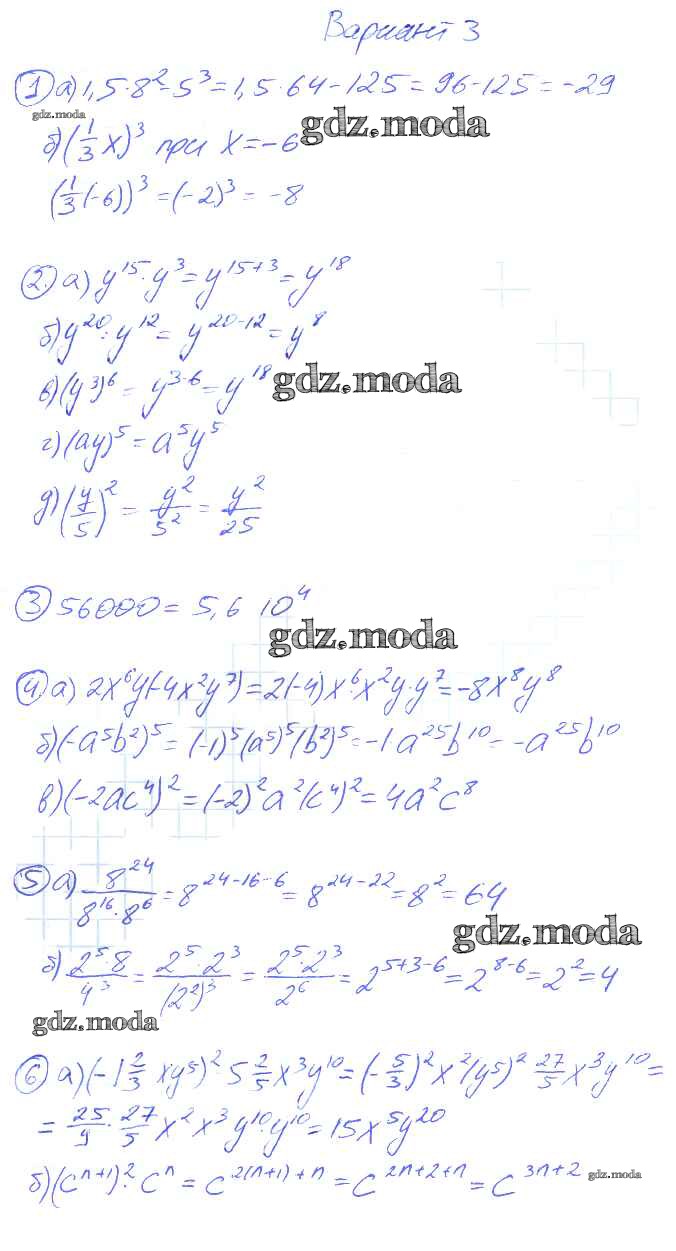 Вариант 3
① а) 1,5·8² - 5³ = 1,5·64 - 125 = 96 - 125 = -29
gdz.moda
gdz.moda
б) (1/3 x)³ при x = -6
(1/3 (-6))³ = (-2)³ = -8
②. а) y¹⁵·y³ = y¹⁵⁺³ = y¹⁸
б) y²⁰ : y¹² = y²⁰⁻¹² = y⁸
в) (y³)⁶ = y³·⁶ = y¹⁸
gdz.moda
г) (ay)⁵ = a⁵y⁵
д) (y/5)² = y²/5² = y²/25
③ 56000 = 5,6 10⁴
gdz.moda
④ а) 2x⁶y(-4x²y⁷) = 2(-4)x·⁶x²y·y⁷ = -8x⁸y⁸
б) (-a⁵b²)⁵ = (-1)⁵(a⁵)⁵(b²)⁵ = -1a²⁵b¹⁰ = -a²⁵b¹⁰
в) (-2ac⁴)² = (-2)²a²(c⁴)² = 4a²c⁸
⑤ а) 8²⁴/(8¹⁶·8⁶) = 8²⁴⁻¹⁶⁻⁶ = 8²⁴⁻²² = 8² = 64
gdz.moda
б) (2⁵·8)/4³ = (2⁵·2³)/(2²)³ = (2⁵·2³)/2⁶ = 2⁵⁺³⁻⁶ = 2⁸⁻⁶ = 2² = 4
gdz.moda
⑥ а) (-1 2/3 xy⁵)² 5 2/5 x³y¹⁰ = (-5/3)²x²(y⁵)² 27/5 x³y¹⁰ =
= 25/9 · 27/5 x²x³y¹⁰·y¹⁰ = 15x⁵y²⁰
б) (cⁿ⁺¹)²·cⁿ = c²⁽ⁿ⁺¹⁾⁺ⁿ = c²ⁿ⁺²⁺ⁿ = c³ⁿ⁺²
gdz.moda